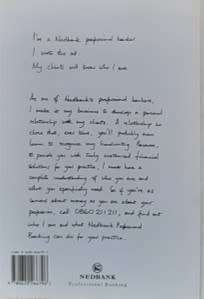 I'm a Nedbank professional banker
I wrote this ad.
My clients will know who I am.
As one of Nedbank's professional bankers,
I make it my business to develop a personal
relationship with my clients. A relationship so
close that, over time, you'll probably even
learn to recognise my handwriting. Because,
to provide you with truly customised financial
solutions for your practice, I must have a
complete understanding of who you are and
what you specifically need. So if you're as
serious about money as you are about your
profession, call 0860 211 211, and find out
who I am and what Nedbank Professional
Banking can do for your practice.
NEDBANK
Professional Banking